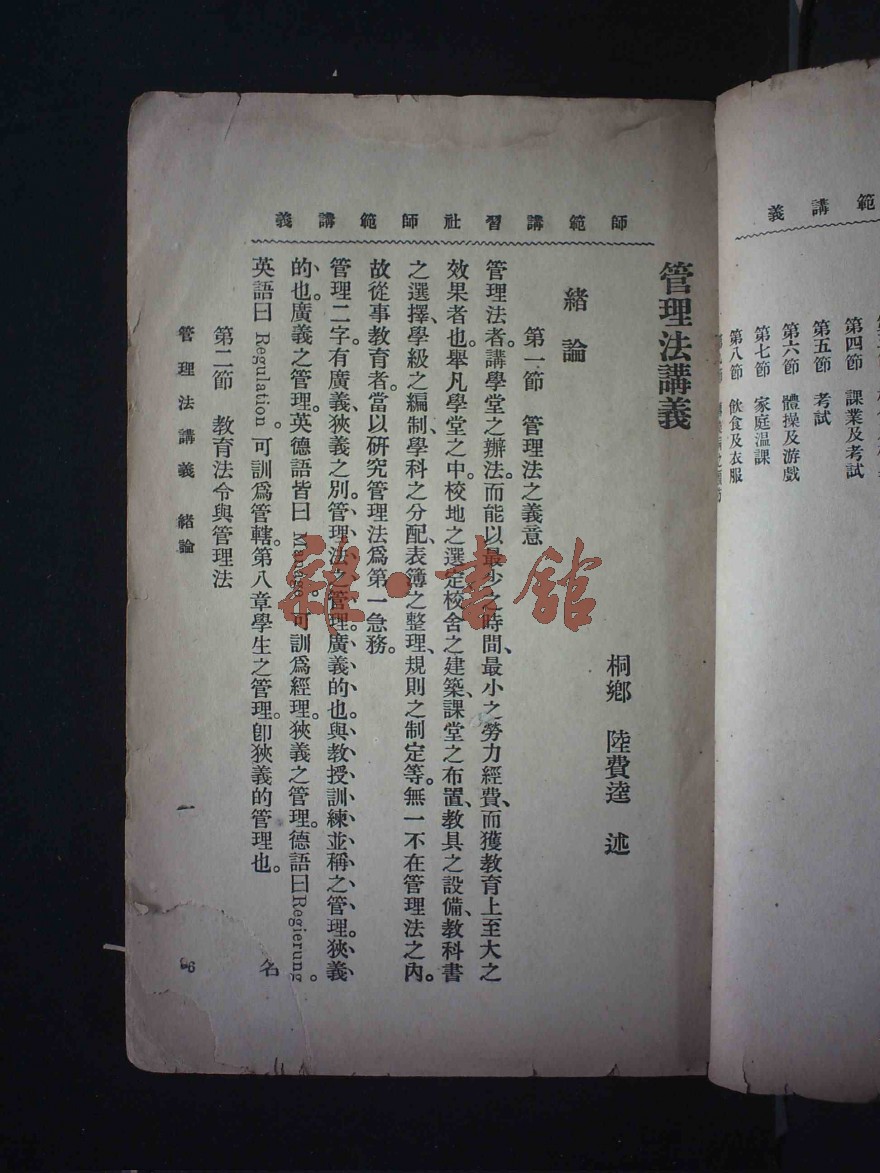 範講義
第四節　課業及考試
第五節　考試
第六節　體操及游戲
第七節　家庭温課
第八節　飲食及衣服
師範講習社師範講義
管理法講義
桐鄉　陸費逵　述
緒論
第一節　管理法之義意
管理法者。講學堂之辦法。而能以最少之時間、最小之勞力經費、而獲教育上至大之
效果者也。舉凡學堂之中。校地之選定、校舍之建築、課堂之布置、教具之設備、教科書
之選擇、學級之編制、學科之分配、表簿之整理、規則之制定等。無一不在管理法之內。
故從事教育者。當以研究管理法爲第一急務。
管理二字。有廣義、狹義之別。管理法之管理。廣義的也。與教授訓練並稱之管理。狹義
的也。廣義之管理。英德語皆曰 Manage。可訓爲經理。狹義之管理。德語曰 Regierung。
英語曰 Regulation。可訓爲管轄。第八章學生之管理。卽狹義的管理也。
第二節　教育法令與管理法
名
管理法講義　緒論
一
雜·書館